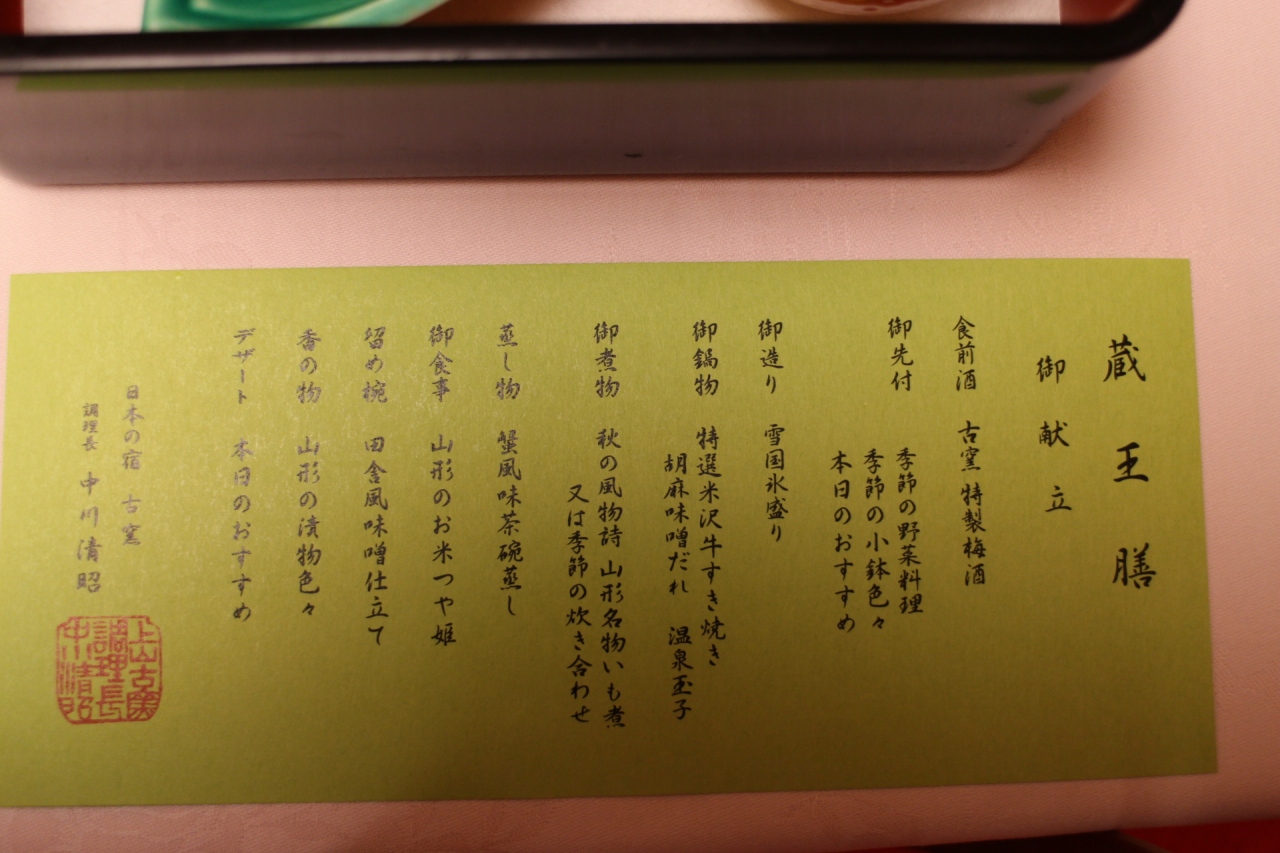 蔵王膳
御献立
食前酒 古窯 特製梅酒
御先付 季節の野菜料理
季節の小鉢色々
本日のおすすめ
御造り 雪国氷盛り
御鍋物 特選米沢牛すき焼き
胡麻味噌だれ 温泉玉子
御煮物 秋の風物詩 山形名物いも煮
又は季節の炊き合わせ
蒸し物 蟹風味茶碗蒸し
御食事 山形のお米つや姫
留め椀 田舎風味噌仕立て
香の物 山形の漬物色々
デザート 本日のおすすめ
日本の宿 古窯
調理長 中川清昭
上山古窯
調理長
中川清昭